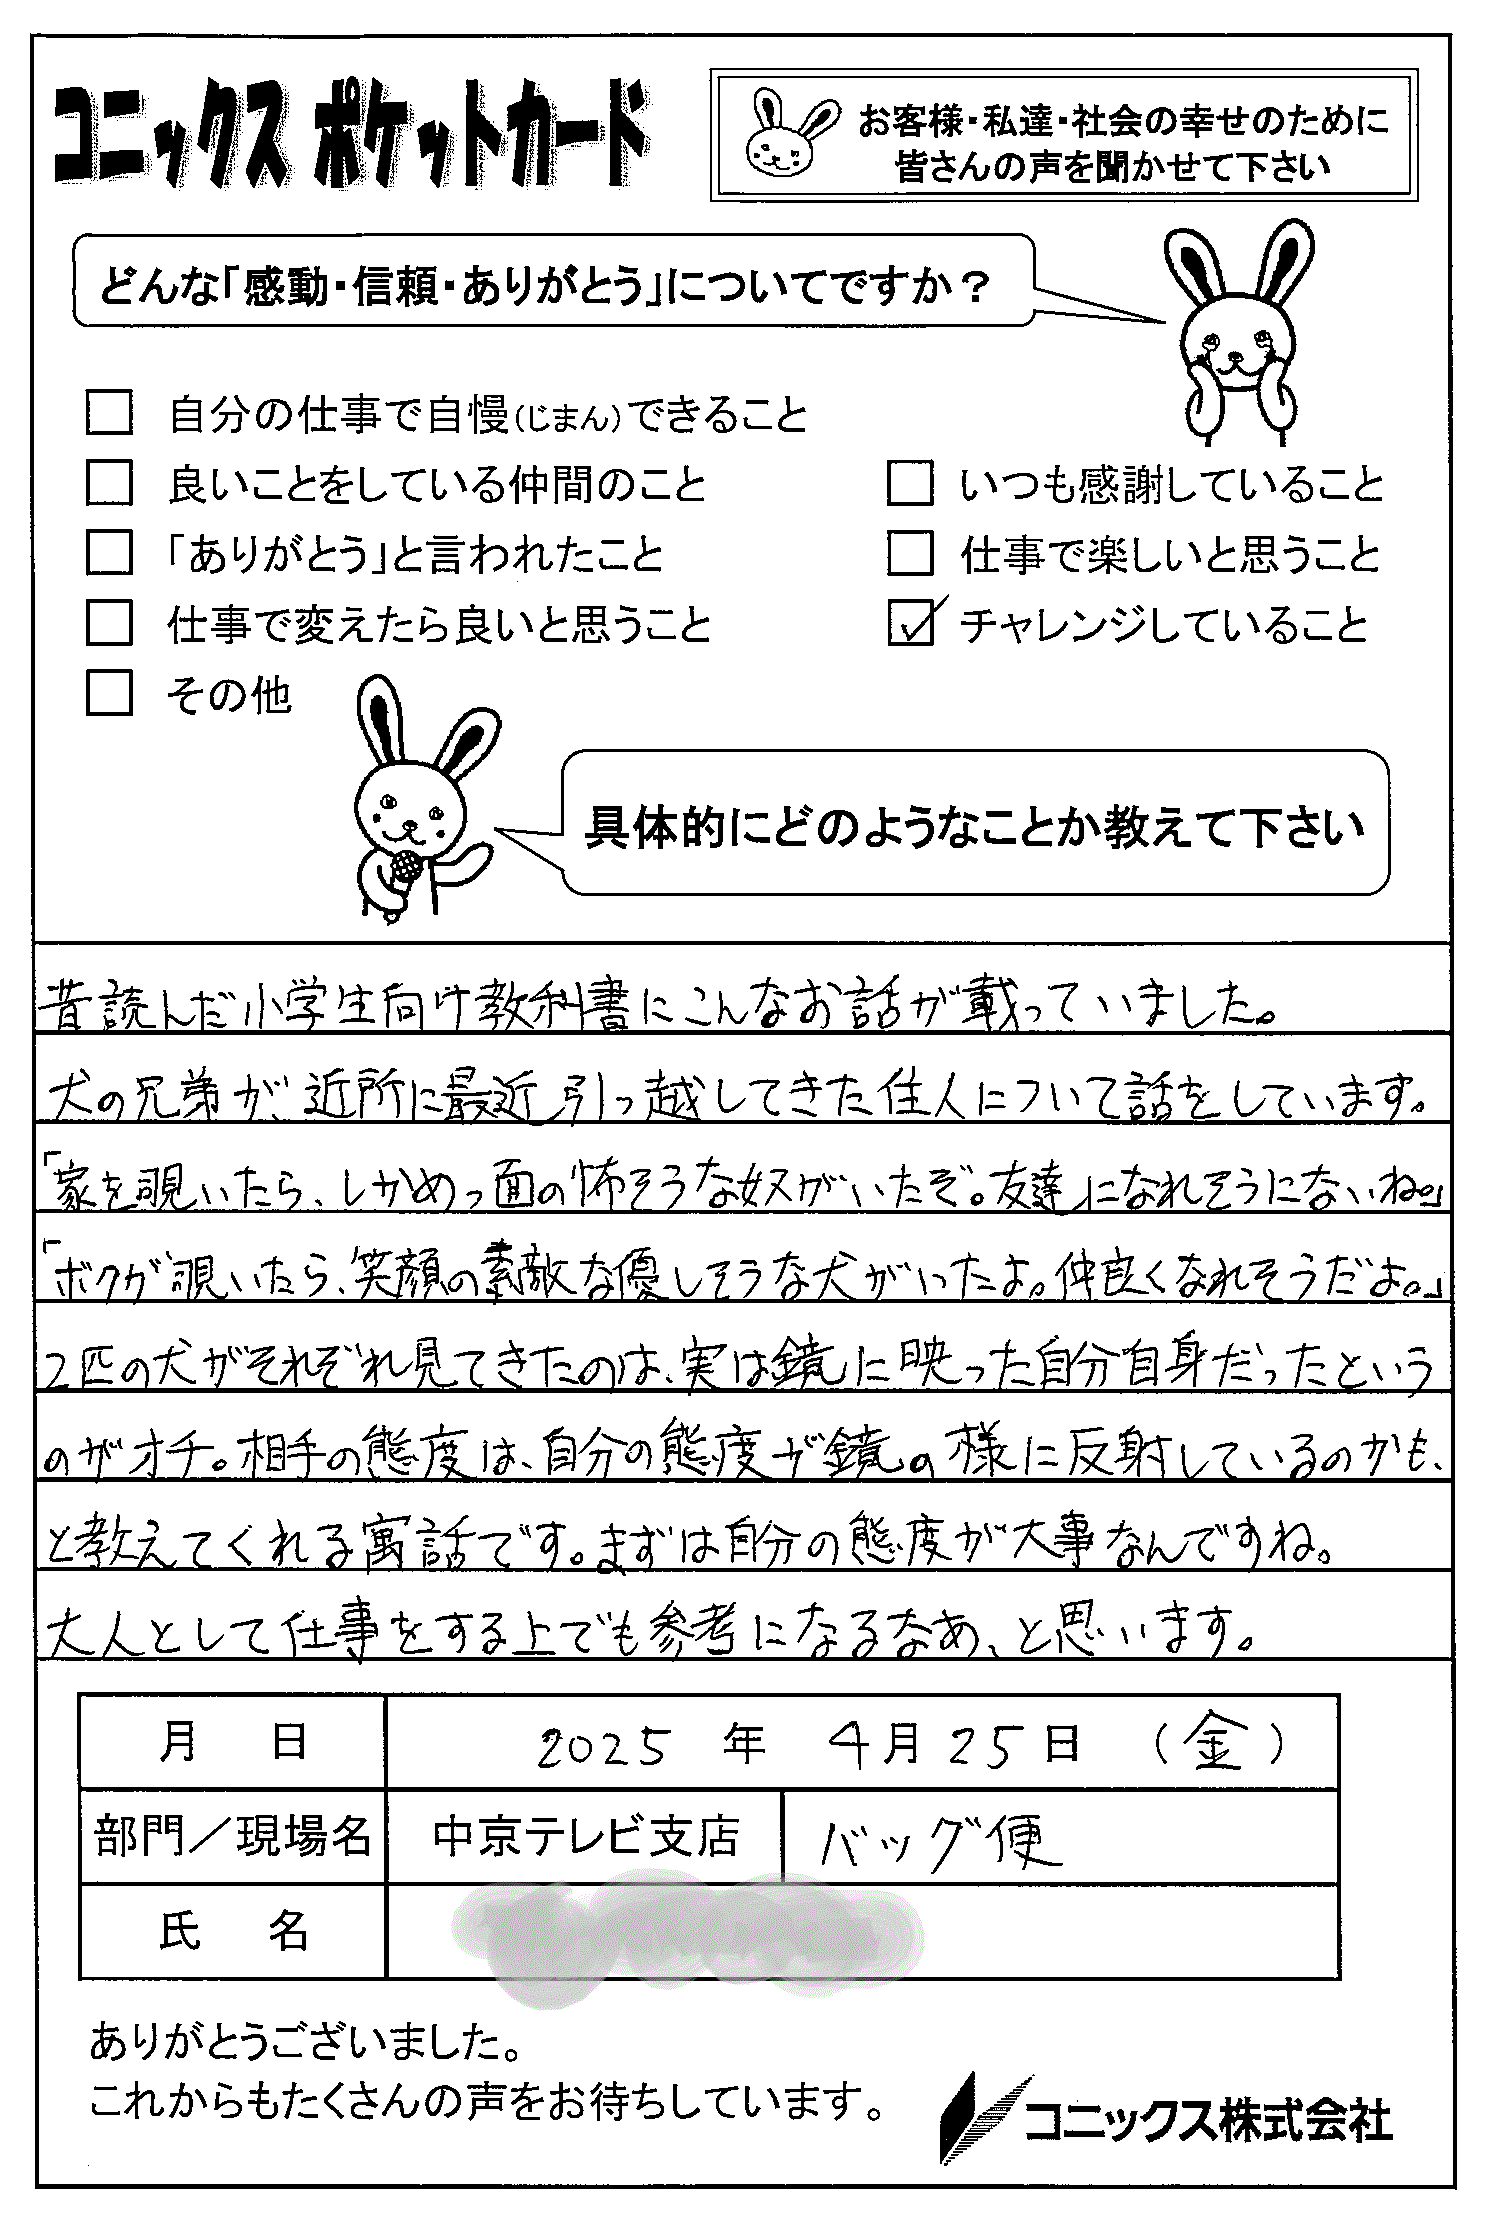 コニックス ポケットカード
お客様・私達・社会の幸せのために
皆さんの声を聞かせて下さい
どんな「感動・信頼・ありがとう」についてですか？
□ 自分の仕事で自慢(じまん)できること
□ 良いことをしている仲間のこと
□ いつも感謝していること
□ 「ありがとう」と言われたこと
□ 仕事で楽しいと思うこと
□ 仕事で変えたら良いと思うこと
☑ チャレンジしていること
□ その他
具体的にどのようなことか教えて下さい
昔読んだ小学生向け教科書にこんなお話が載っていました。
犬の兄弟が、近所に最近引っ越してきた住人について話をしています。
「家を覗いたら、しかめっ面の怖そうな奴がいたぞ。友達になれそうにないね。」
「ボクが覗いたら、笑顔の素敵な優しそうな犬がいたよ。仲良くなれそうだよ。」
2匹の犬がそれぞれ見てきたのは、実は鏡に映った自分自身だったという
のがオチ。相手の態度は、自分の態度が鏡の様に反射しているのかも、
と教えてくれる寓話です。まずは自分の態度が大事なんですね。
大人として仕事をする上でも参考になるなあ、と思います。
月 日 2025 年 4月 25日 (金)
部門／現場名 中京テレビ支店 バッグ便
氏 名
ありがとうございました。
これからもたくさんの声をお待ちしています。
コニックス株式会社